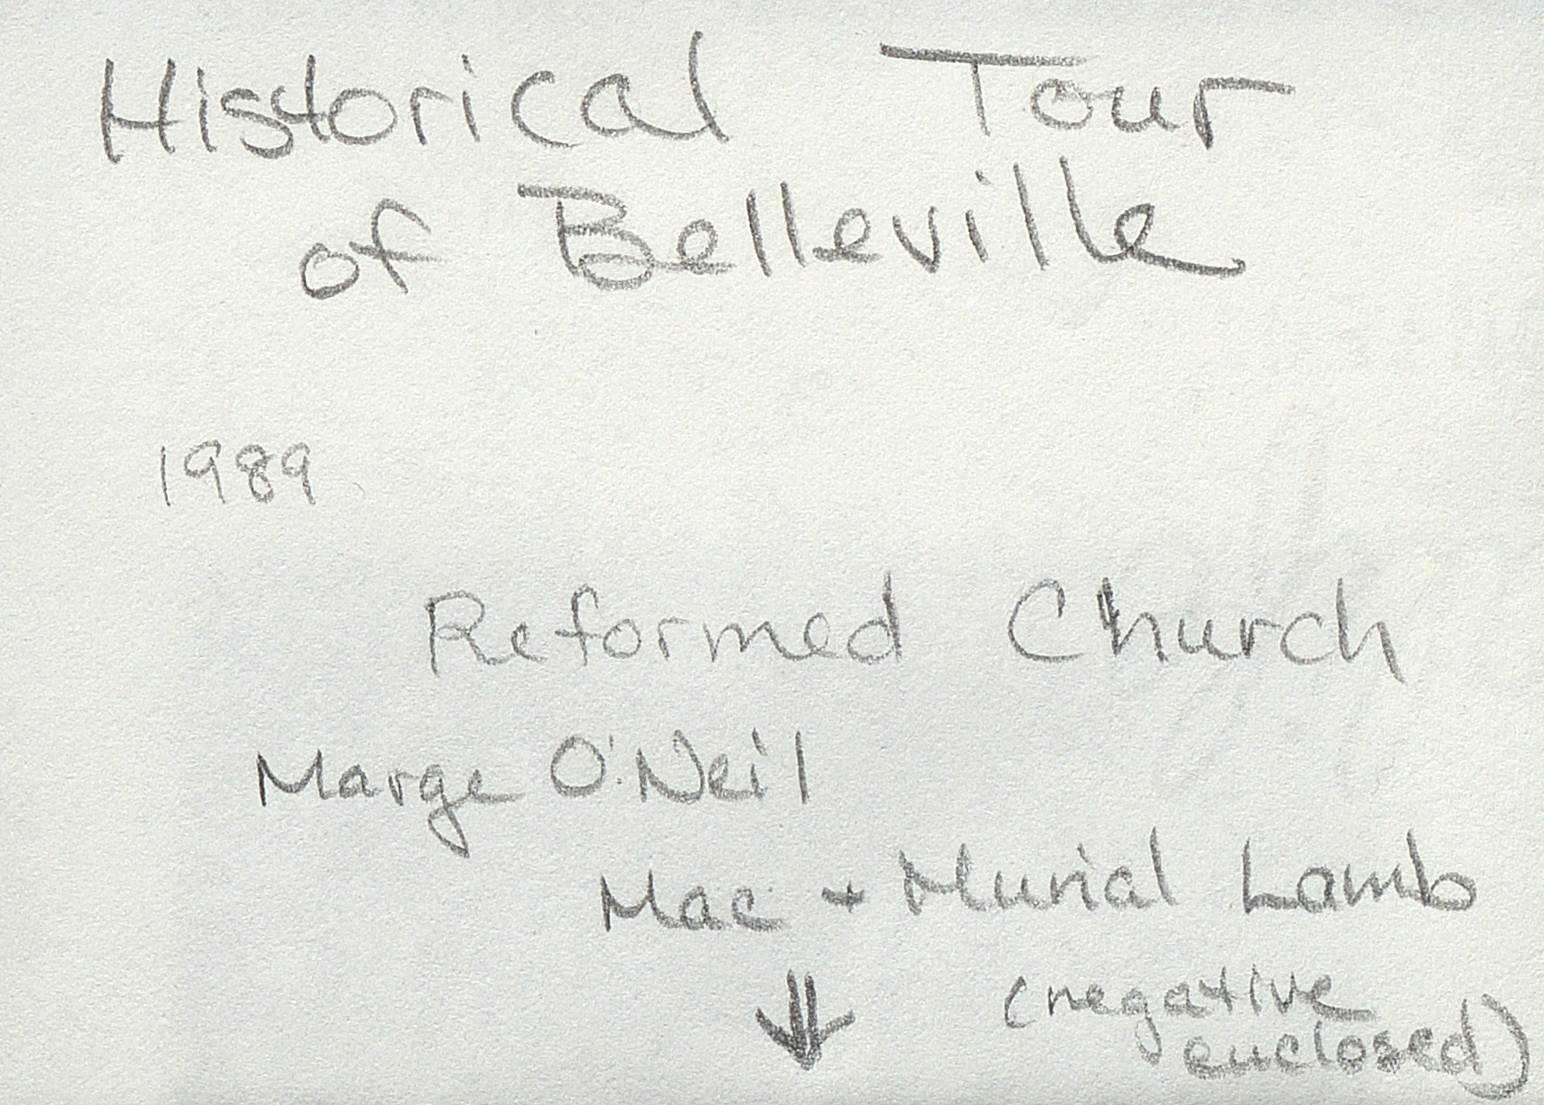 Historical Tour
of Belleville
1989
Reformed Church
Marge O'Neil
Mac + Murial Lamb
(negative
enclosed)